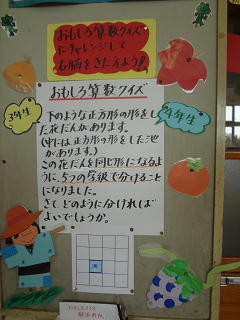 おもしろ算数クイズ
にチャレンジして
右脳をきたえよう!
3年生
4年生
おもしろ算数クイズ
下のような正方形の形をし
た花だんがあります。
(中には正方形の形をした池
があります。)
この花だんを同じ形になるよ
うに、5つの学級で分けること
になりました。
さて、どのように分ければ
よいでしょうか。
池